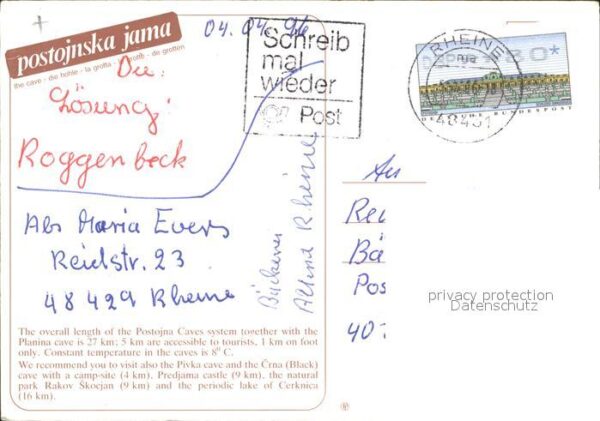 04.04.96
postojnska jama
the cave - die höhle - la grotta - la grotte - de grotten
Die
Lösung:
Roggenbeck
Abs Maria Evers
Reidstr. 23
48429 Rheine
Bäckerei
Rheine
Schreib
mal
wieder
Post
RHEINE
80*
48431
DEUTSCHE BUNDESPOST
An
Rei
Bä
Pos
40-
privacy protection
Datenschutz
The overall length of the Postojna Caves system together with the
Planina cave is 27 km; 5 km are accessible to tourists, 1 km on foot
only. Constant temperature in the caves is 8° C.
We recommend you to visit also the Pivka cave and the Črna (Black)
cave with a camp-site (4 km), Predjama castle (9 km), the natural
park Rakov Škocjan (9 km) and the periodic lake of Cerknica
(16 km).